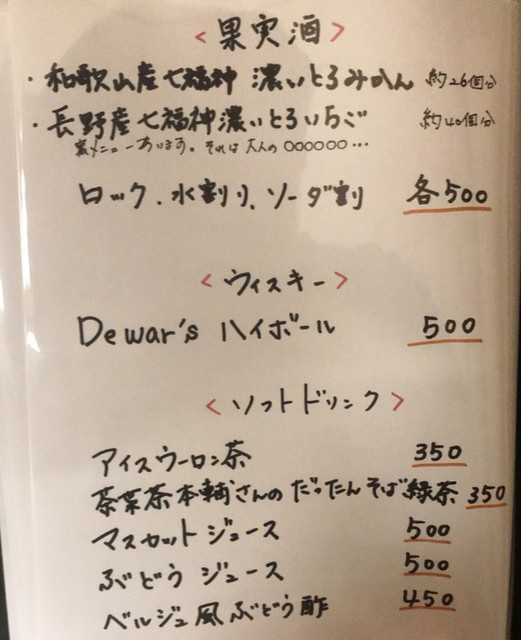 <果実酒>
・和歌山産七福神 濃いとろみかん 約26個分
・長野産七福神濃いとろいちご 約40個分
裏メニューあります。それは大人の○○○○○○…
ロック、水割り、ソーダ割 各500
<ウィスキー>
Dewar's ハイボール 500
<ソフトドリンク>
アイスウーロン茶 350
茶葉茶本舗さんのだったんそば緑茶 350
マスカットジュース 500
ぶどうジュース 500
ベルジュ風ぶどう酢 450